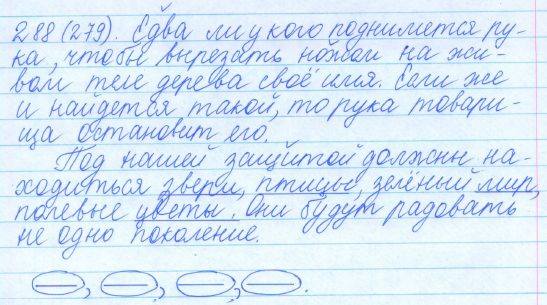 288 (279). Едва ли у кого поднимется ру-
ка, чтобы вырезать ножом на жи-
вом теле дерева своё имя. Если же
и найдется такой, то рука товари-
ща остановит его.
Под нашей защитой должны на-
ходиться звери, птицы, зелёный мир,
полевые цветы. Они будут радовать
не одно поколение.